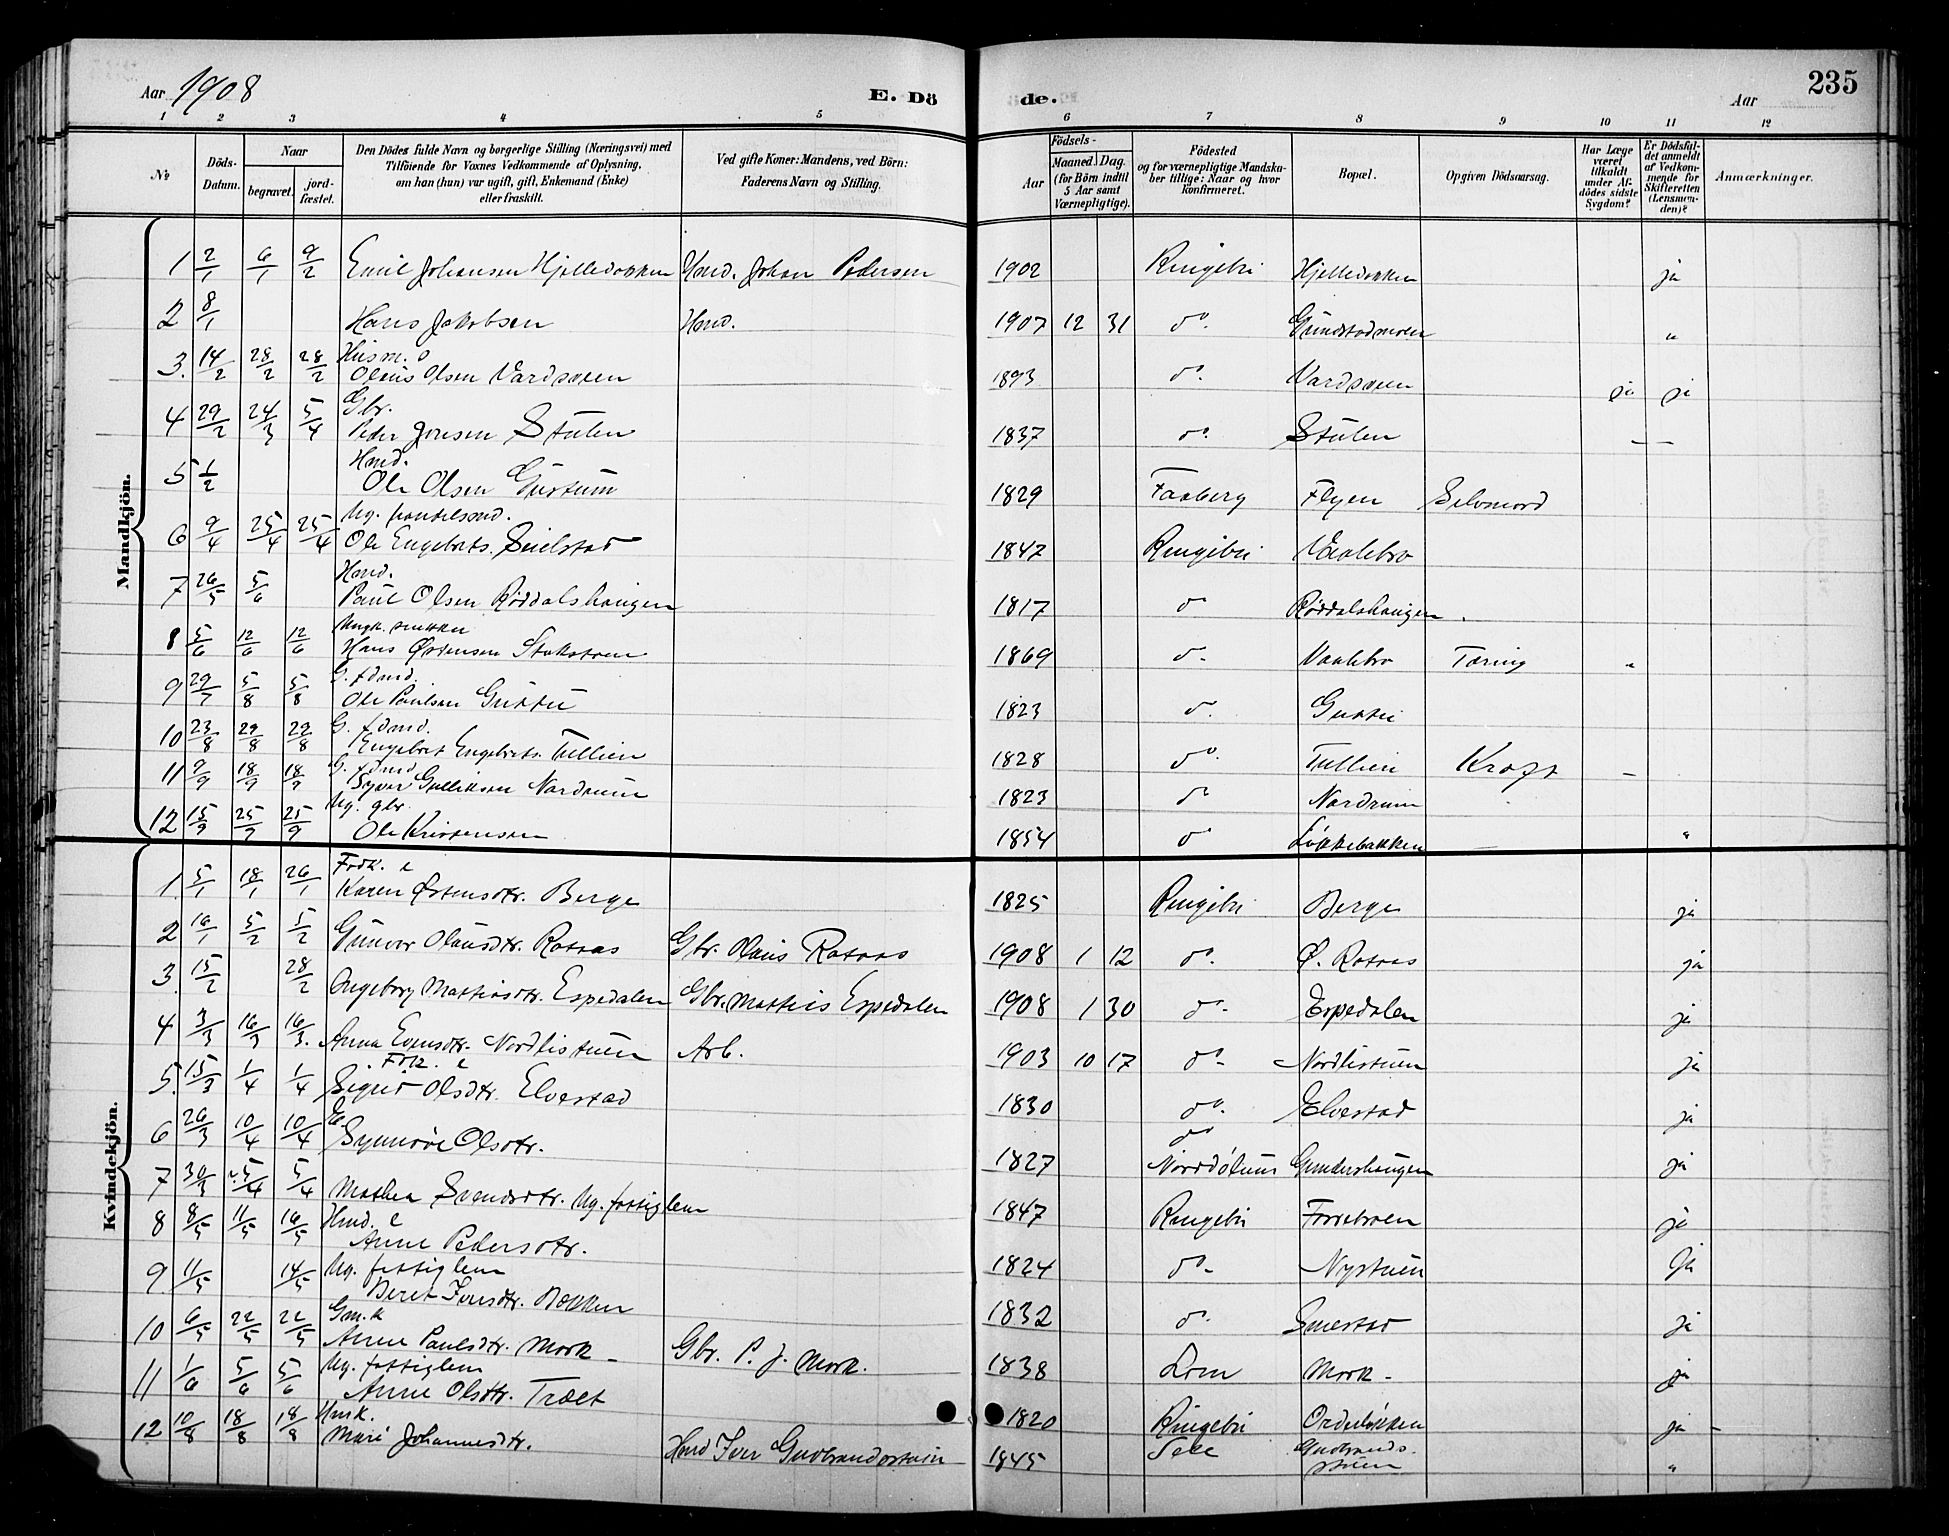 Aar 1908 E. Dö de. Aar 235
1 2 3 4 5 6 7 8 9 10 11 12
No
Döds-
Datum.
Naar
begravet.
jord-
fæstet.
Den Dödes fulde Navn og borgerlige Stilling (Næringsvei) med
Tilföiende for Voxnes Vedkommende af Oplysning,
om han (hun) var ugift, gift, Enkemand (Enke)
eller fraskilt.
Ved gifte Koner: Mandens, ved Börn:
Faderens Navn og Stilling.
Födsels-
Aar
Maaned. Dag.
(for Börn indtil
5 Aar samt
Værnepligtige).
Födested
og for værnepligtige Mandska-
ber tillige: Naar og hvor
konfirmeret.
Bopæl.
Opgiven Dödsaarsag.
Har Læge
været
tilkaldt
under Af-
dödes sidste
Sygdom?
Er Dödsfal-
det anmeldt
af Vedkom-
mende for
Skifteretten
(Lensman-
den)?
Anmærkninger.
Mandkjön.
1 2/1 6/1 9/2 Emil Johansen Hjelledokken Hmd. Johan Pedersen 1902 Ringebu Hjelledokken ja
2 8/1 Hans Jakobsen Hmd. 1907 12 31 do. Gundstadmoen "
3. 14/2 28/2 28/2 Husm. s
Olaus Olsen Vardsveen 1893 do. Vardsveen ja ja
4 29/2 24/3 5/4 Gbr.
Peder Jonsen Stulen 1837 do. Stulen —
5 1/2 Hmd.
Ole Olsen Gustum 1829 Faaberg Flyen Selvmord
6 9/4 25/4 25/4 Ug. handelsmd.
Ole Engebrets. Seielstad 1847 Ringebu Vaalebro
7 26/5 5/6 Hmd.
Paul Olsen Røddalshaugen 1817 do Røddalshaugen.
8 5/6 12/6 12/6 Ungk. snekker
Hans Østensen Stokstoen 1869 do. Vaalebro Tæring "
9 29/7 5/8 5/8 G. fdmd.
Ole Paulsen Gustu 1823 do. Gustu
10 23/8 29/8 29/8 G. fdmd.
Engebret Engebrets. Tullien 1828 do. Tullien Kræft —
11 9/9 18/9 18/9 G. fdmd
Syver Gulliksen Nordrum 1823 do Nordrum
12 15/9 25/9 25/9 Ug. gbr.
Ole Kristensen 1854 do Løkkebakken "
Kvindekjön.
1. 5/1 18/1 26/1 Fodk. e
Karen Østensdtr. Berge 1825 Ringebu Berge ja
2 16/1 5/2 5/2 Gunvor Olausdtr. Rotaas Gbr. Olaus Rotaas 1908 1 12 do. Ø. Rotaas ja
3. 15/2 28/2 Ingeborg Mathiasdtr. Espedalen Gbr. Mathis Espedalen 1908 1 30 do. Espedalen ja
4 3/3 16/3 16/3. Anna Evensdtr. Nordlistuen Arb. 1903 10 17 do. Nordlistuen ja
5. 15/3 1/4 1/4 Fdk. e
Sigrid Olsdtr. Elvestad 1830 do. Elvestad ja
6 26/3 10/4 10/4 E.
Synnøve Olsdtr. 1827 do
Norddølum Gundershaugen ja
7 30/3 5/4 5/4 Mathea Svendsdtr. Ug. fattiglem 1847 Ringebu Forrebroen ja
8 8/5 11/5 16/5 Hmd. e
Anne Pedersdtr. 1824 do. Nystuen Ja
9. 11/5 14/5 Ug. fattiglem
Beret Iversdtr. Bakken 1832 do. Smestad ja
10 6/5 22/5 22/5 Gm.k
Anne Paulsdtr. Mork — Gbr. P. J. Mork. 1838 Lom Mork - ja
11 1/6 5/6 5/6 Ug. fattiglem
Anne Olsdtr. Træet 1820 Ringebu Ordeløkken ja —
12 10/8 18/8 18/8 Hmk.
Mari Johannesdtr. Hmd Iver Gudbrandsstuen 1845 Sell Gudbrands-
stuen "